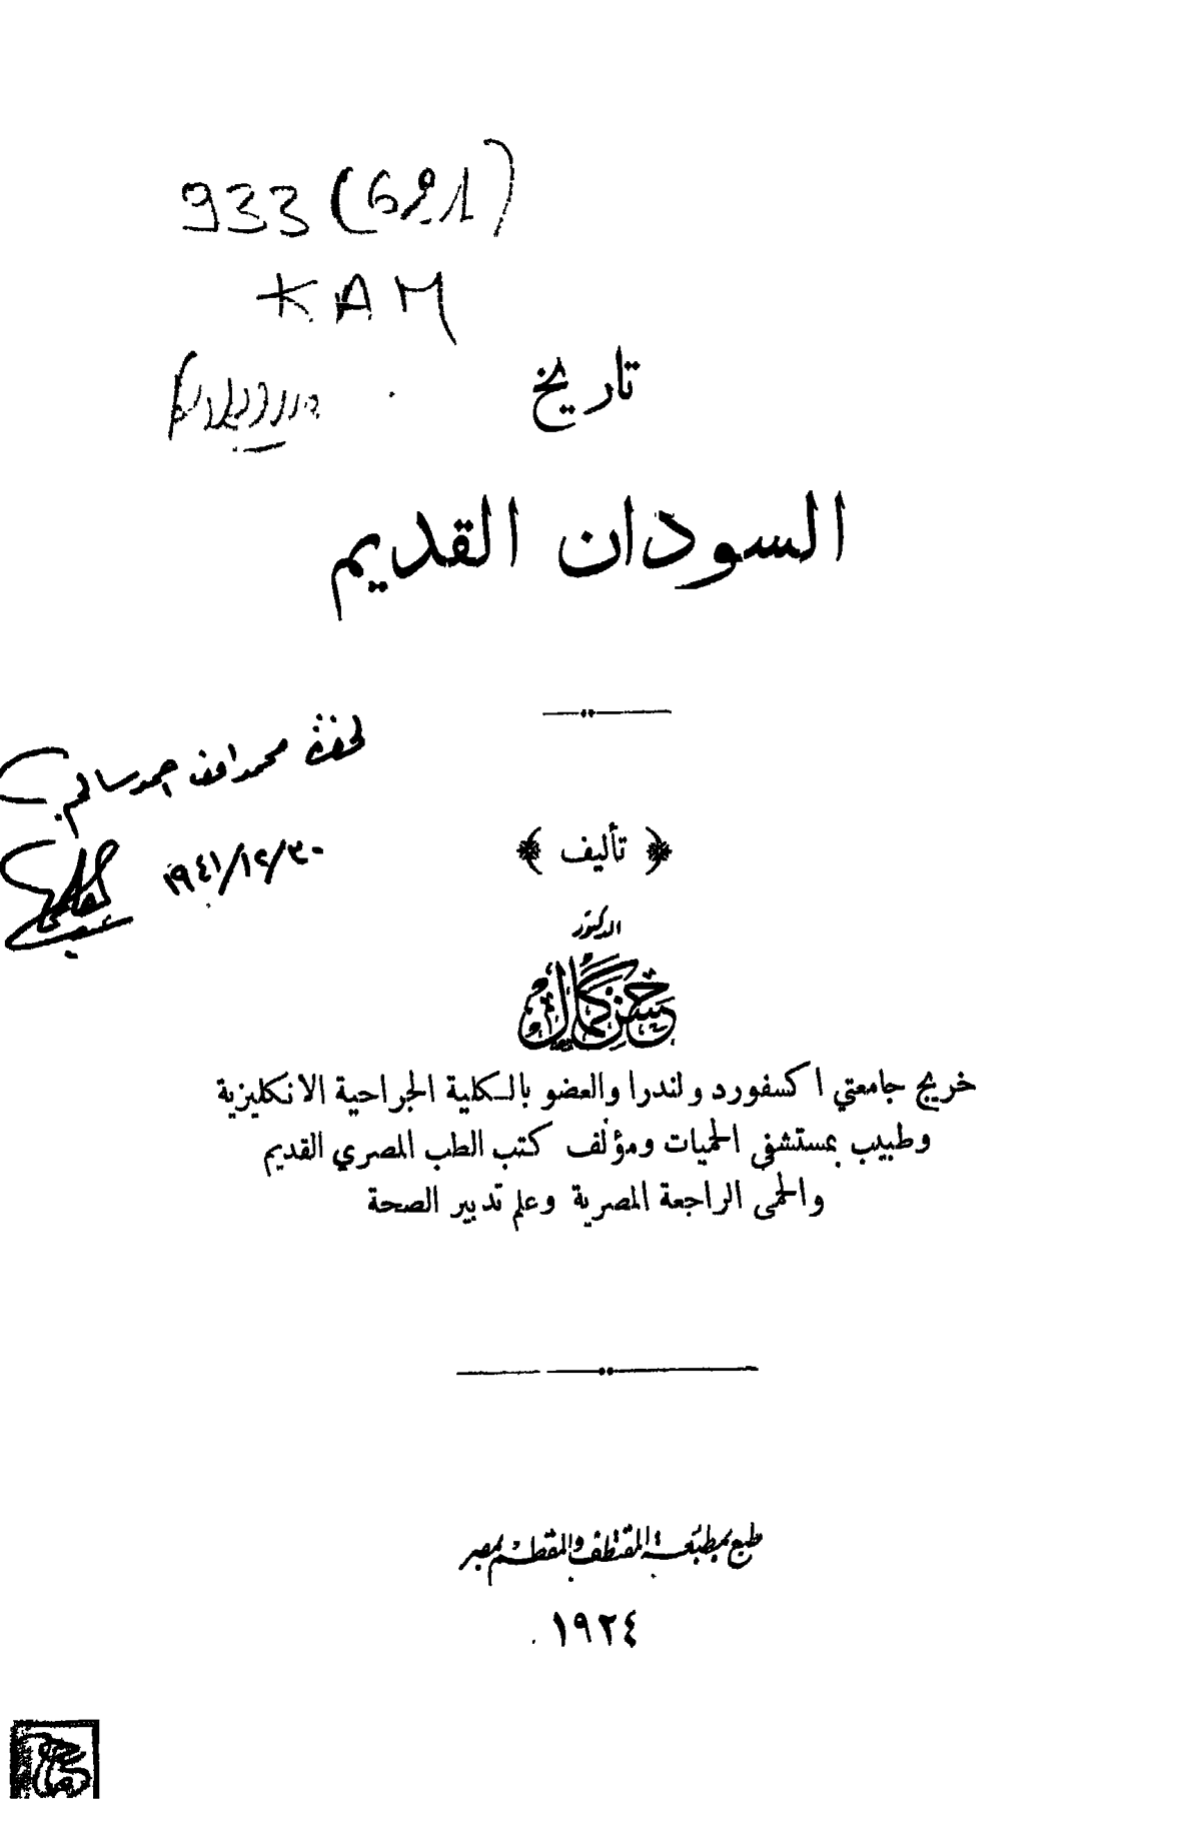 933 (621)
KAM
تاريخ
السودان القديم
لحضرة محمد افندي احمد سالم
٣٠/١٢/١٩٤١
﴿ تأليف ﴾
الدكتور
حسن كمال
خريج جامعتي اكسفورد ولندرا والعضو بالكلية الجراحية الانكليزية
وطبيب بمستشفى الحميات ومؤلف كتب الطب المصري القديم
والحمى الراجعة المصرية وعلم تدبير الصحة
طبع بمطبعة المقتطف والمقطم بمصر
١٩٢٤